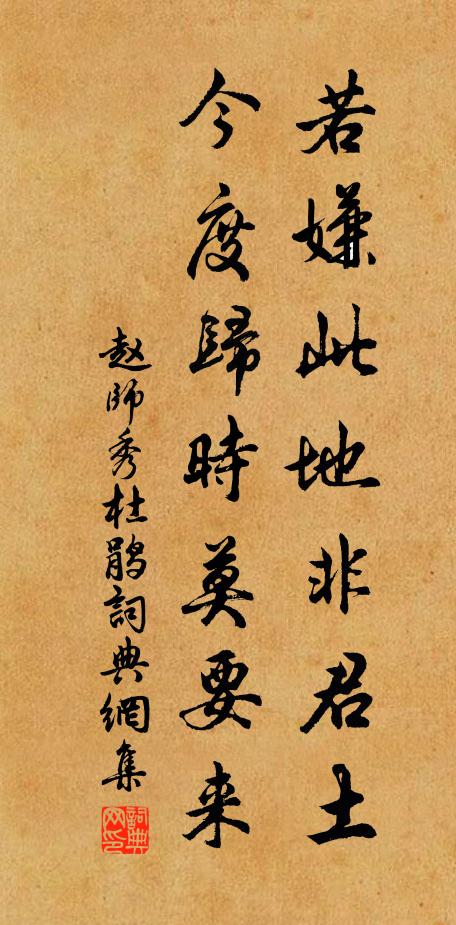 若嫌此地非君土
今度歸時莫要来
赵師秀杜鹃詞典網集
詞典网印